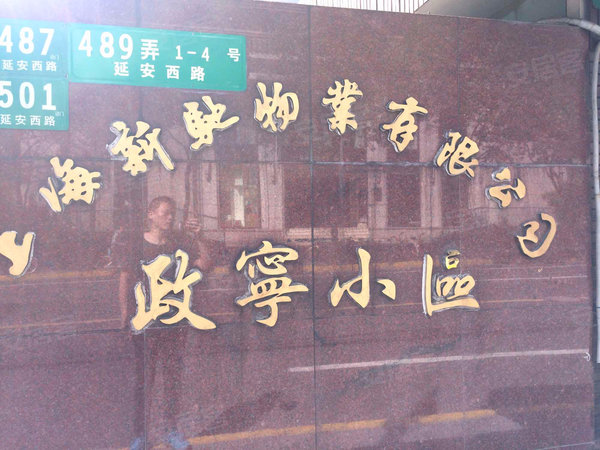 487
延安西路
489弄 1-4 号
延安西路
501
延安西路
上海新馳物業有限公司
政寧小區